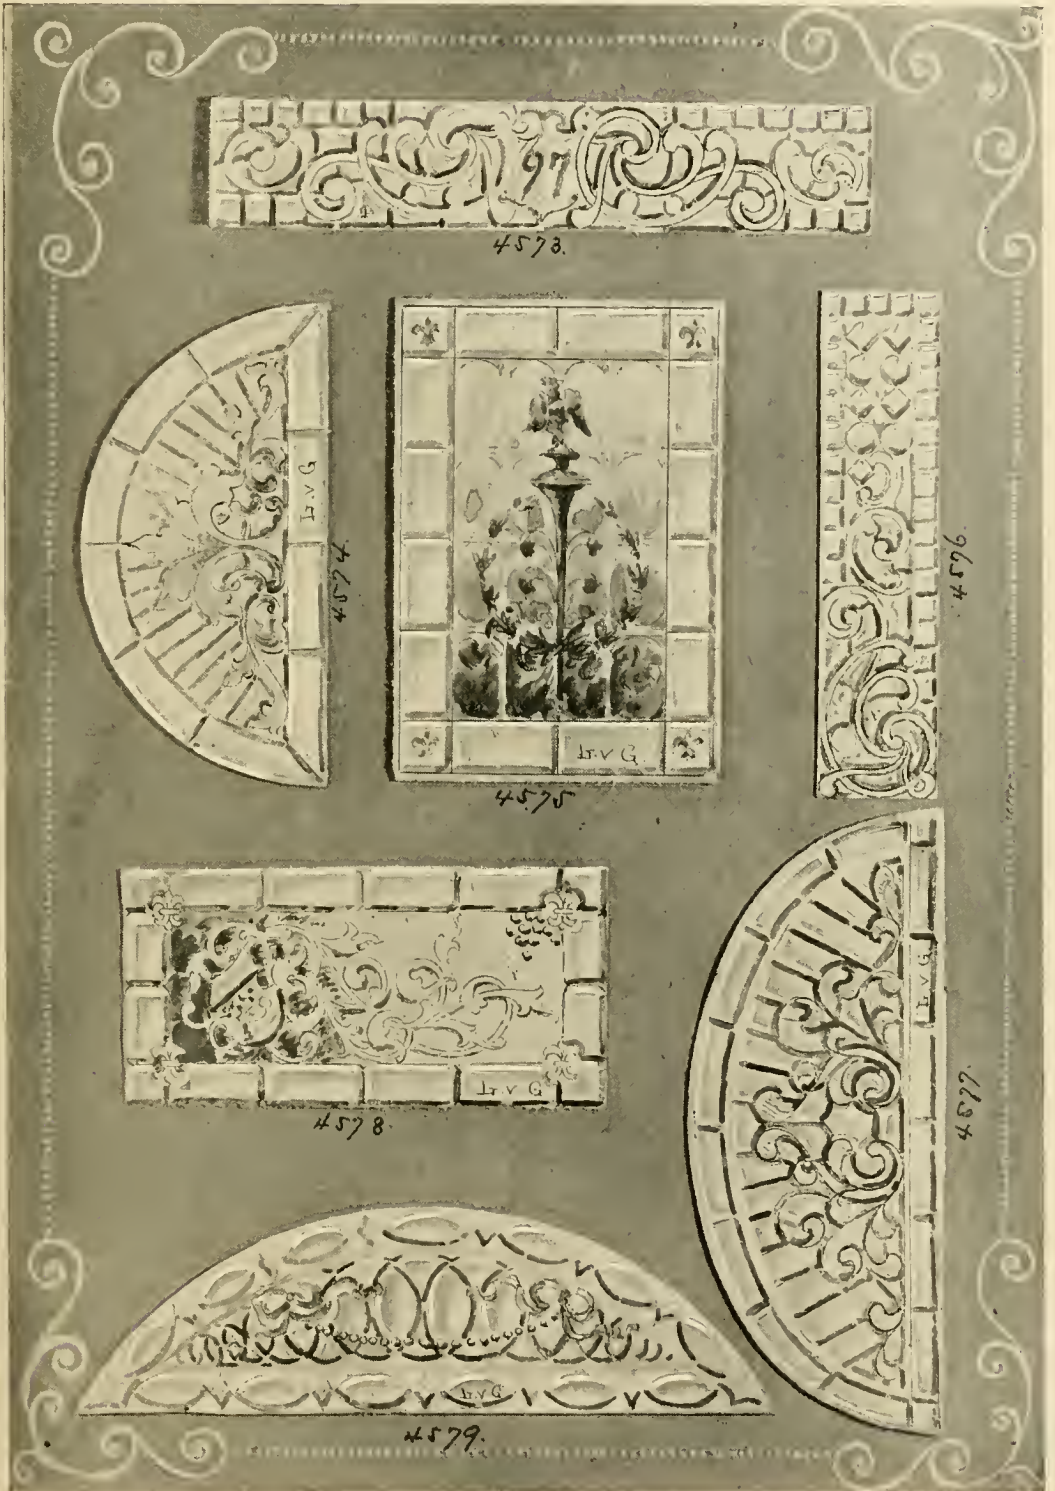 97
4573.
L.v.G
4574.
L.v G
4575
4576.
L.v G
4577.
L.v G
4578.
L.v.G
4579.